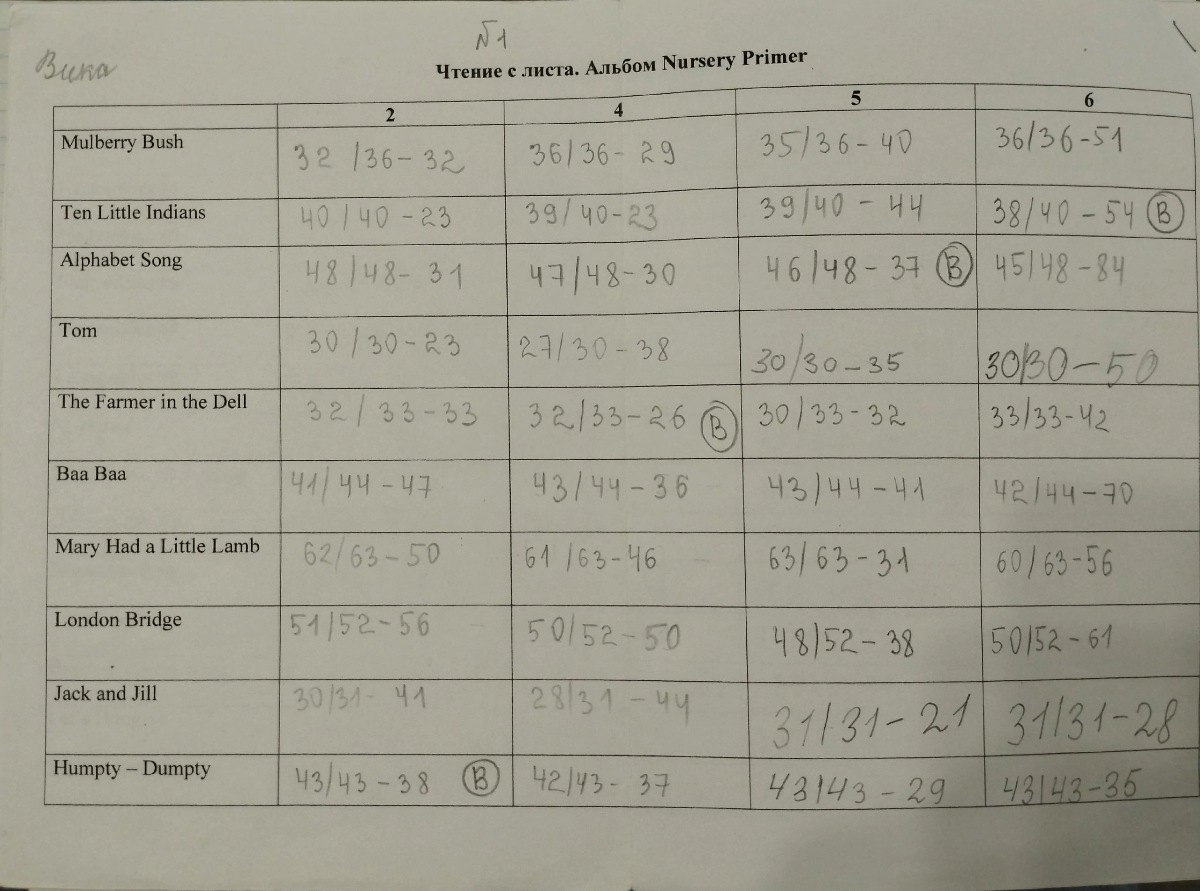 №1
Вика
Чтение с листа. Альбом Nursery Primer
2 4 5 6
Mulberry Bush 32 /36 - 32 36/36 - 29 35/36 - 40 36/36 - 51
Ten Little Indians 40/40 - 23 39/40 - 23 39/40 - 44 38/40 - 54 В
Alphabet Song 48/48 - 31 47/48 - 30 46/48 - 37 В 45/48 - 84
Tom 30/30 - 23 27/30 - 38 30/30 - 35 30/30 - 50
The Farmer in the Dell 32/33 - 33 32/33 - 26 В 30/33 - 32 33/33 - 42
Baa Baa 41/44 - 47 43/44 - 36 43/44 - 41 42/44 - 70
Mary Had a Little Lamb 62/63 - 50 61/63 - 46 63/63 - 31 60/63 - 56
London Bridge 51/52 - 56 50/52 - 50 48/52 - 38 50/52 - 61
Jack and Jill 30/31 - 41 28/31 - 44 31/31 - 21 31/31 - 28
Humpty – Dumpty 43/43 - 38 В 42/43 - 37 43/43 - 29 43/43 - 35